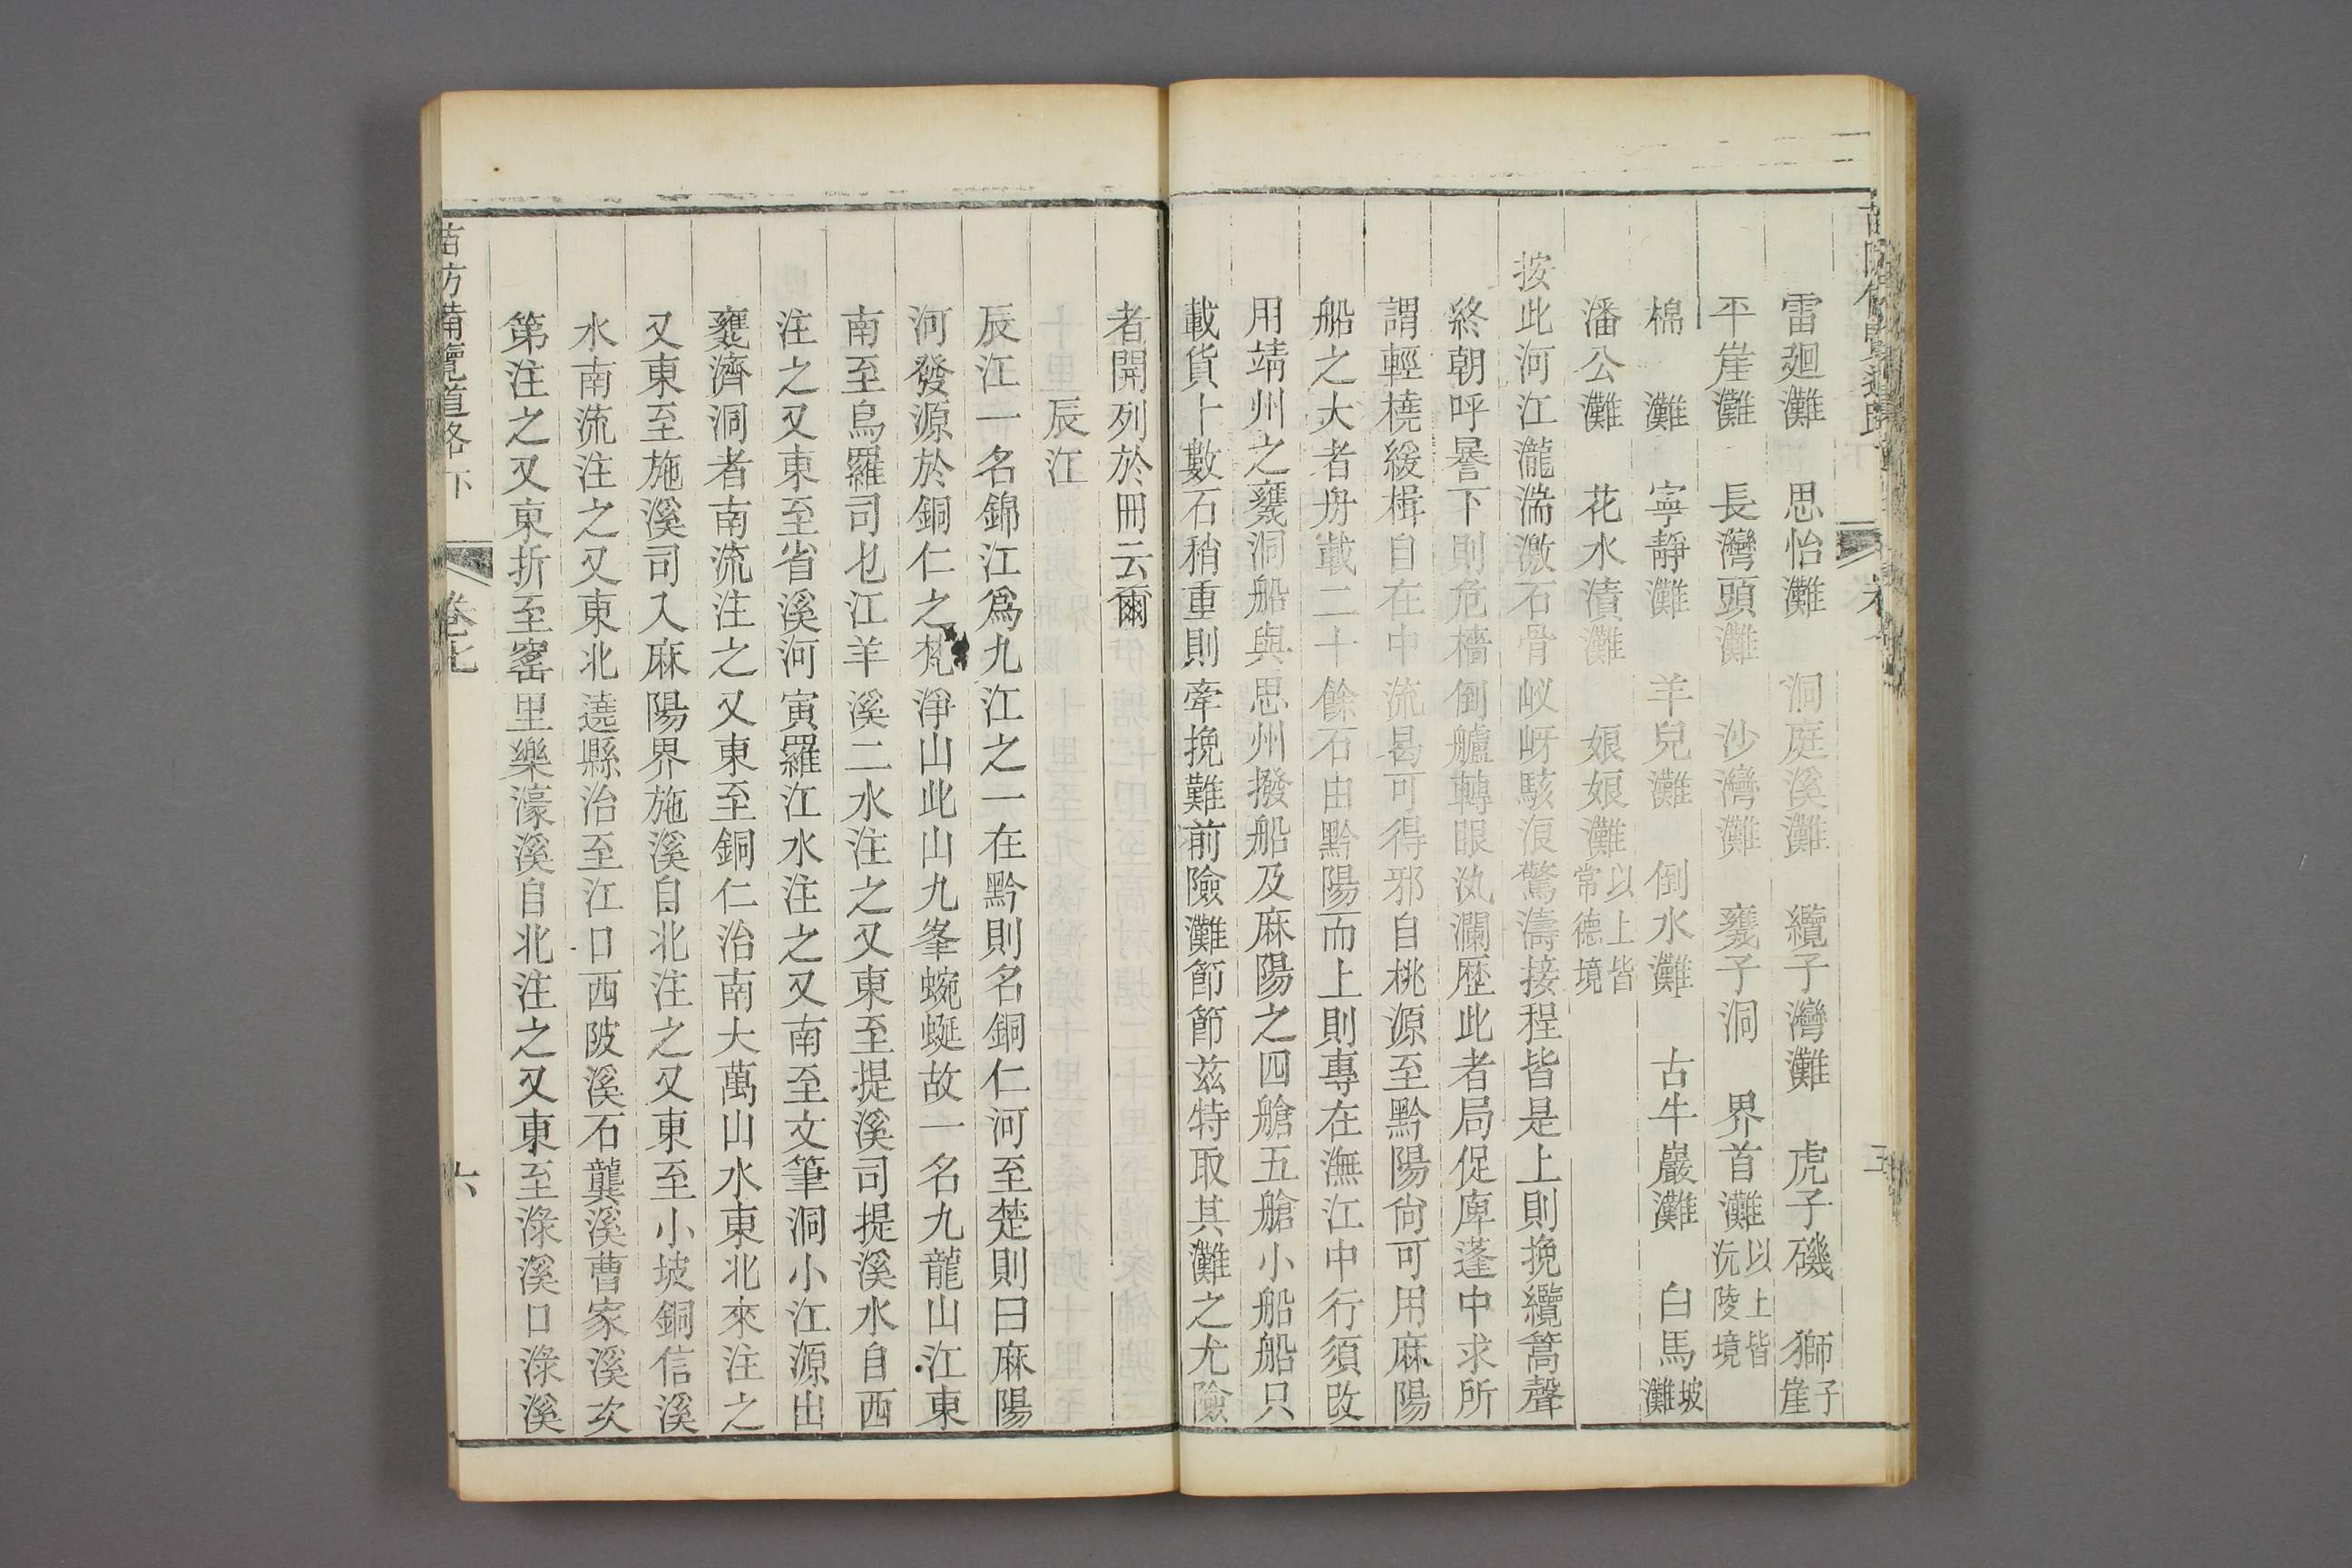 雷廻灘　思怡灘　洞庭溪灘　纜子灣灘　虎子磯　獅子崖
平崖灘　長灣頭灘　沙灣灘　甕子洞　界首灘以上皆沅陵境
棉灘　寧靜灘　羊兒灘　倒水灘　古牛巖灘　白馬坡灘
潘公灘　花水漬灘　娘娘灘以上皆常德境
按此河江瀧湍激石骨㠖岈駭浪驚濤接程皆是上則挽纜篙聲
終朝呼䜋下則危檣倒艫轉眼洑瀾歷此者局促庳蓬中求所
謂輕橈緩楫自在中流曷可得邪自桃源至黔陽尙可用麻陽
船之大者舟載二十餘石由黔陽而上則專在潕江中行須改
用靖州之甕洞船與思州撥船及麻陽之四艙五艙小船船只
載貨十數石稍重則牽挽難前險灘節節茲特取其灘之尤險
者開列於冊云爾
辰江
辰江一名錦江爲九江之一在黔則名銅仁河至楚則曰麻陽
河發源於銅仁之梵淨山此山九峯蜿蜒故一名九龍山江東
南至烏羅司乜江羊溪二水注之又東至提溪司提溪水自西
注之又東至省溪河寅羅江水注之又南至文筆洞小江源出
甕濟洞者南流注之又東至銅仁治南大萬山水東北來注之
又東至施溪司入麻陽界施溪自北注之又東至小坡銅信溪
水南流注之又東北遶縣治至江口西陂溪石龔溪曹家溪次
第注之又東折至窰里樂濠溪自北注之又東至淥溪口淥溪
苗防備覽道路下　卷七　六